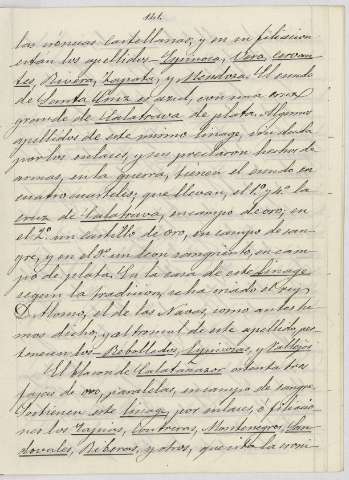 144
las crónicas castellanas, y en su filiacion
estan los apellidos Espinosa, Vera, Cervan-
tes, Rivera, Zapata, y Mendoza. El escudo
de Santa Cruz es azul, con una cruz
grande de Calatrava de plata. Algunos
apellidos de este mismo linage, sin duda
por los enlaces, y sus preclaros hechos de
armas, en la guerra, tienen el escudo en
cuatro cuarteles; que llevan, el 1º y 4º la
cruz de Calatrava, en campo de oro; en
el 2º un castillo de oro, en campo de san-
gre, y en el 3º un leon sangriento, en cam-
po de plata. En la casa de este linage
segun la tradicion, se ha criado el rey
D. Alonso, el de las Navas, como antes he-
mos dicho, y al tronco de este apellido per-
tenecen los Rebolledos, Espinosas, y Vallejos
El blason de Calatañazor ostenta tres
fajas de oro, paralelas, en campo de sangre.
Sostienen este linage, por enlaces, o filiacio-
nes los Tapias, Contreras, Montenegros, San-
dovales, Riberas, y otros, que cita la noti-